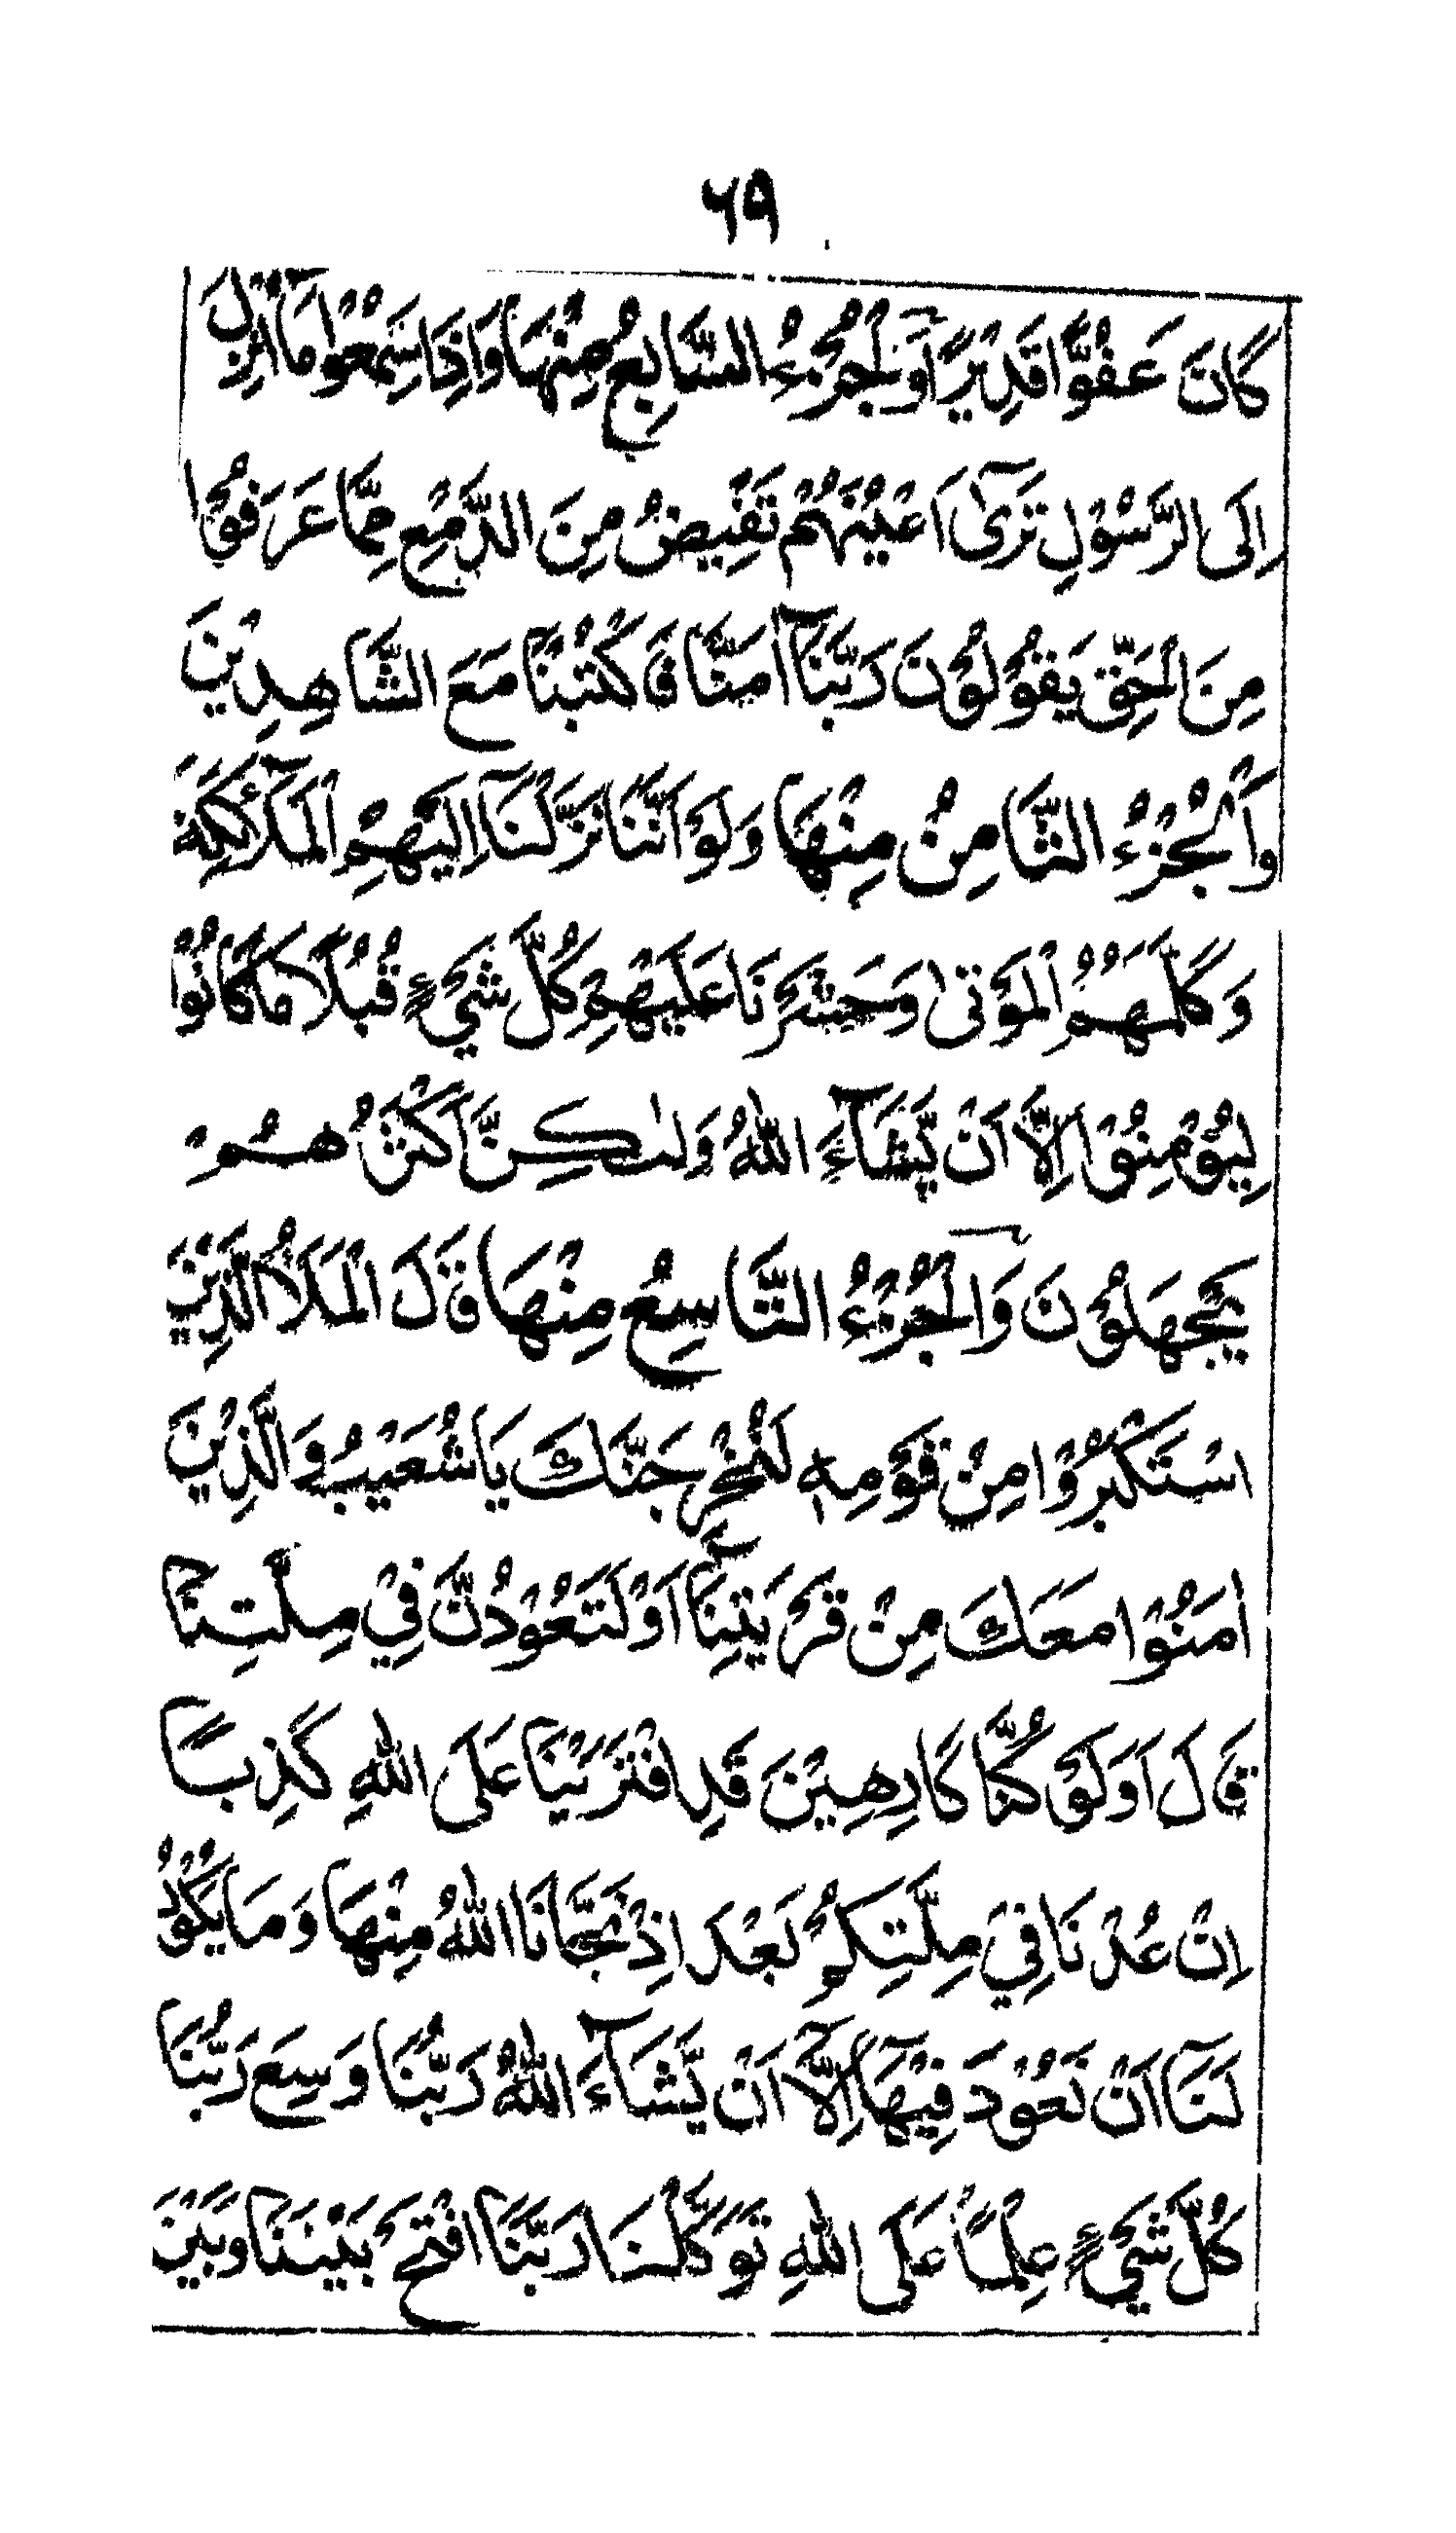 ٦٩
كَانَ عَفُوًّا قَدِيْرًا وَالْجُزْءُ السَّابِعُ مِنْهَا وَاِذَا سَمِعُوْا مَا اُنْزِلَ
اِلَى الرَّسُوْلِ تَرٰىٓ اَعْيُنَهُمْ تَفِيْضُ مِنَ الدَّمْعِ مِمَّا عَرَفُوْا
مِنَ الْحَقِّ يَقُوْلُوْنَ رَبَّنَآ اٰمَنَّا فَاكْتُبْنَا مَعَ الشَّاهِدِيْنَ
وَالْجُزْءُ الثَّامِنُ مِنْهَا وَلَوْ اَنَّنَا نَزَّلْنَآ اِلَيْهِمُ الْمَلَآئِكَةَ
وَكَلَّمَهُمُ الْمَوْتٰى وَحَشَرْنَا عَلَيْهِمْ كُلَّ شَيْءٍ قُبُلًا مَا كَانُوْا
لِيُؤْمِنُوْا اِلَّآ اَنْ يَّشَآءَ اللّٰهُ وَلٰكِنَّ اَكْثَرَهُمْ
يَجْهَلُوْنَ وَالْجُزْءُ التَّاسِعُ مِنْهَا قَالَ الْمَلَاُ الَّذِيْنَ
اسْتَكْبَرُوْا مِنْ قَوْمِهٖ لَنُخْرِجَنَّكَ يَا شُعَيْبُ وَالَّذِيْنَ
اٰمَنُوْا مَعَكَ مِنْ قَرْيَتِنَآ اَوْ لَتَعُوْدُنَّ فِيْ مِلَّتِنَا
قَالَ اَوَلَوْ كُنَّا كَارِهِيْنَ قَدِ افْتَرَيْنَا عَلَى اللّٰهِ كَذِبًا
اِنْ عُدْنَا فِيْ مِلَّتِكُمْ بَعْدَ اِذْ نَجَّانَا اللّٰهُ مِنْهَا وَمَا يَكُوْنُ
لَنَا اَنْ نَعُوْدَ فِيْهَآ اِلَّآ اَنْ يَّشَآءَ اللّٰهُ رَبُّنَا وَسِعَ رَبُّنَا
كُلَّ شَيْءٍ عِلْمًا عَلَى اللّٰهِ تَوَكَّلْنَا رَبَّنَا افْتَحْ بَيْنَنَا وَبَيْنَ